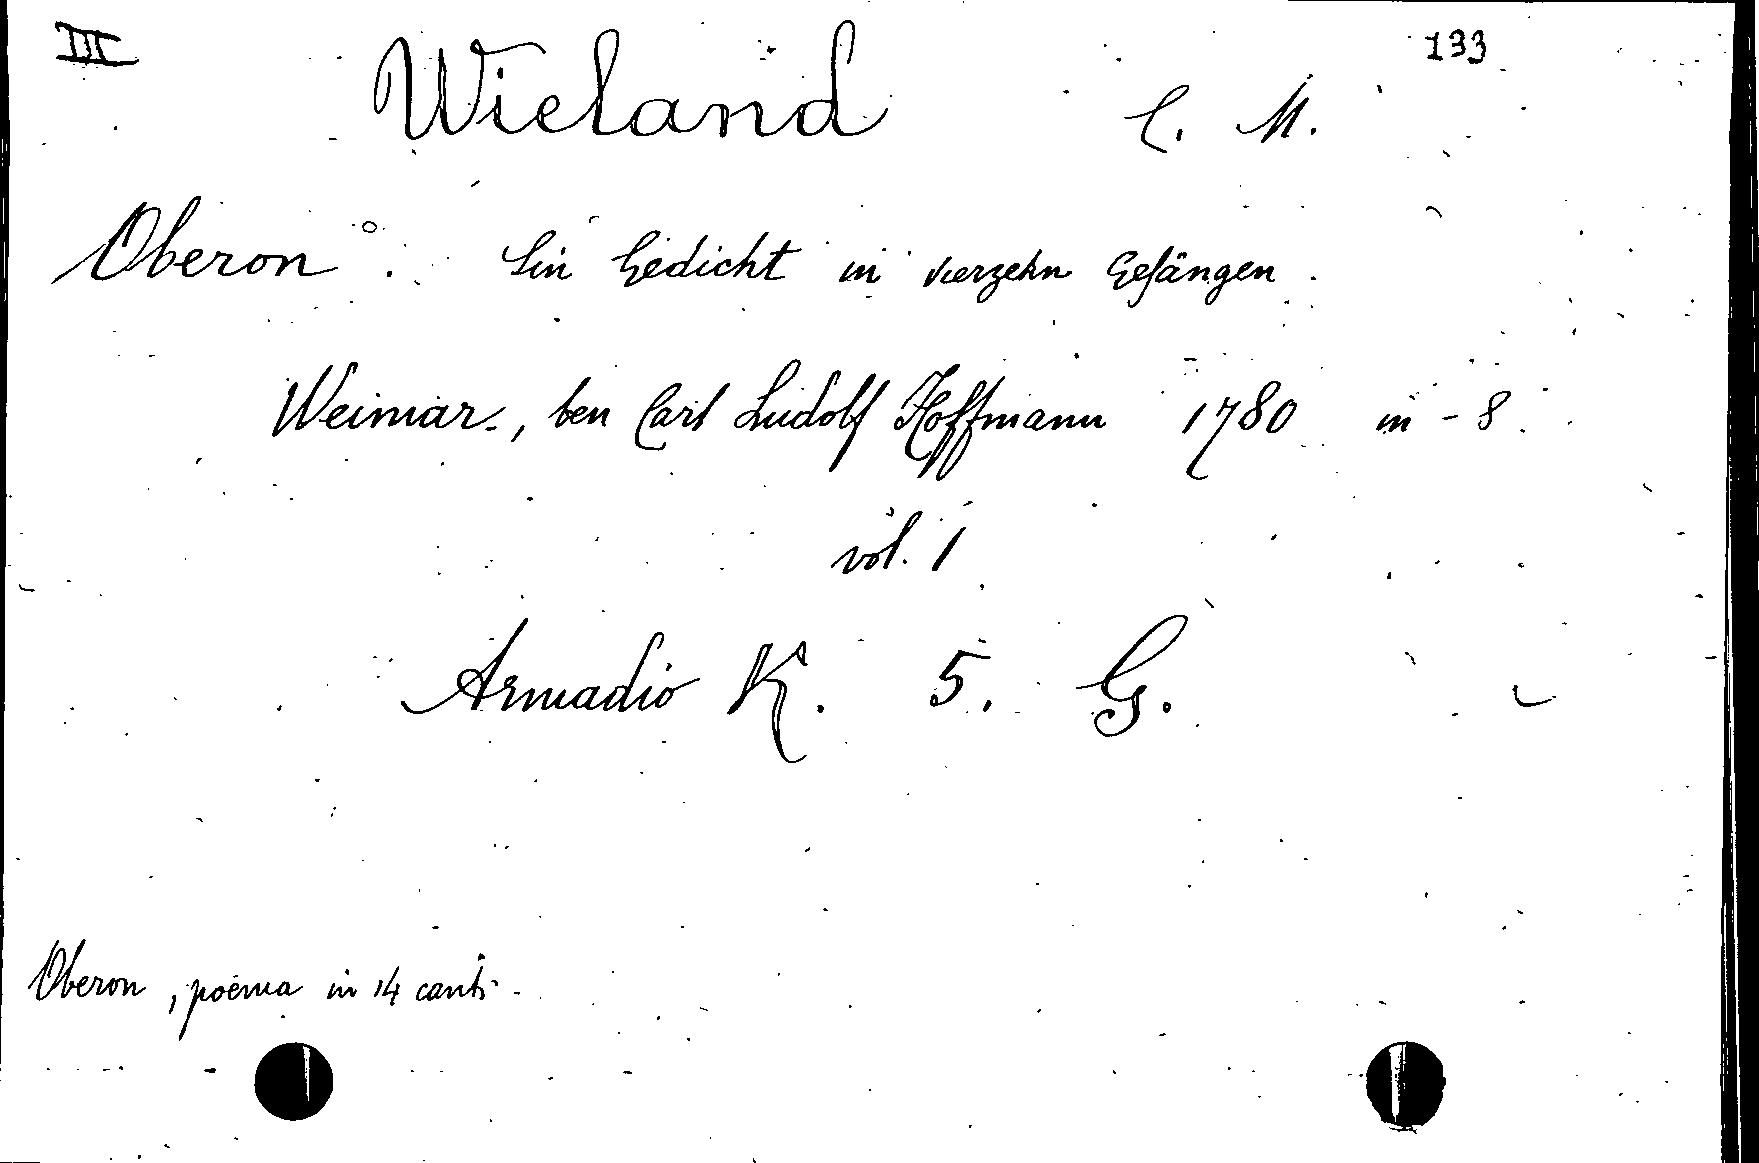 III Wieland C. M. 133
Oberon : Ein Gedicht in vierzehn Gesängen .
Weimar, ben Carl Ludolf Hoffmann 1780 in - 8 .
vol. 1
Armadio K. 5. G.
Oberon , poema in 14 canti -